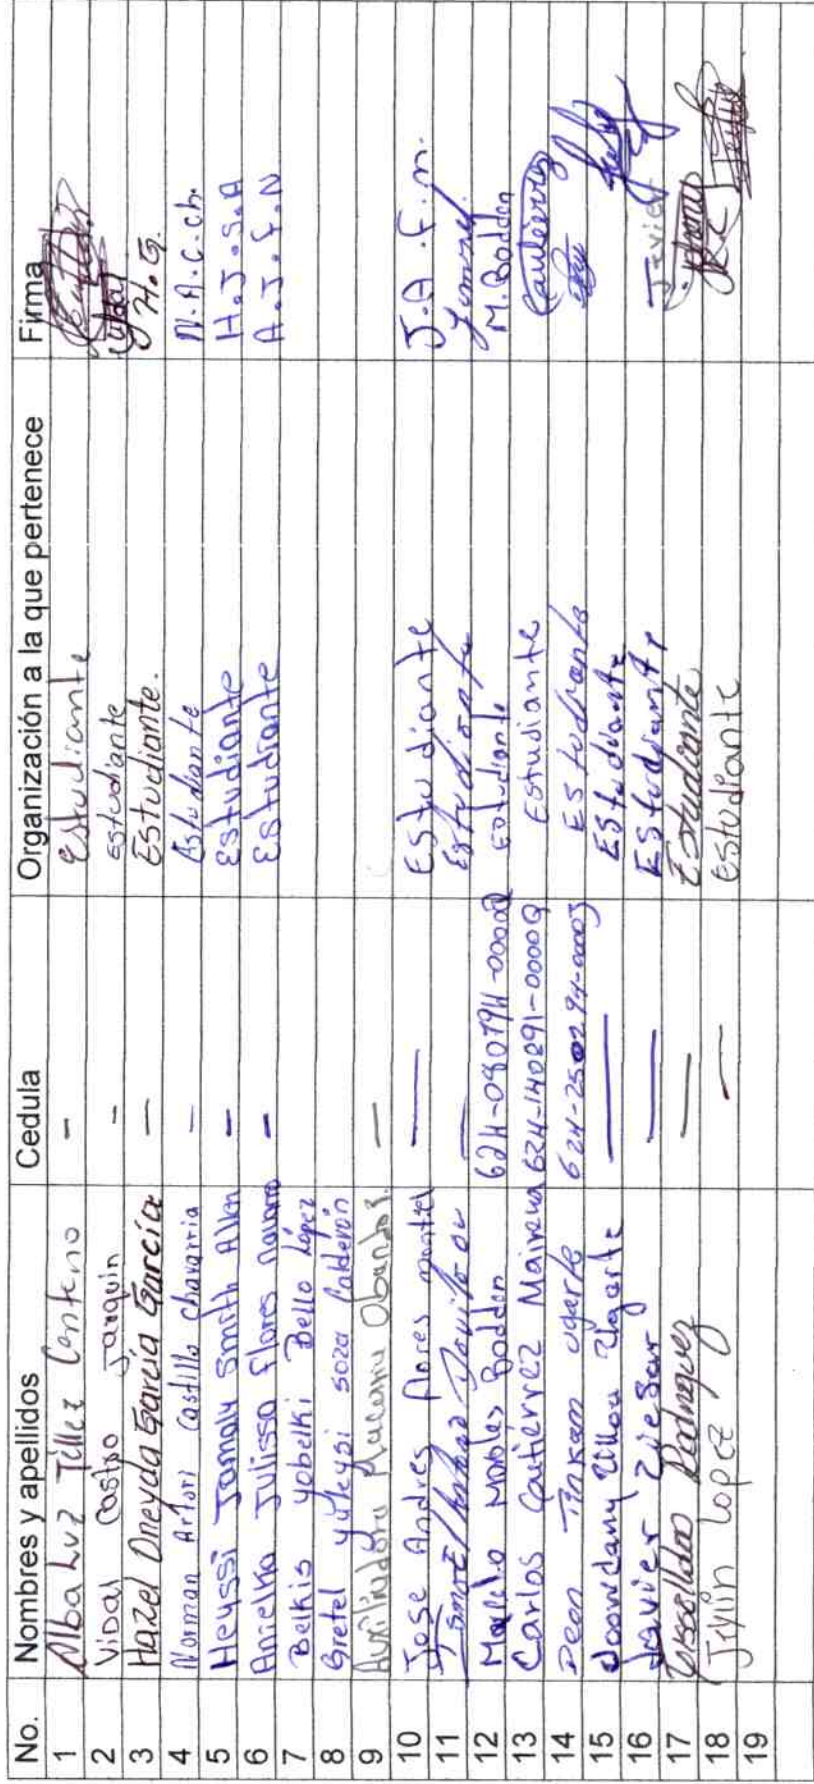 No. Nombres y apellidos Cedula Organización a la que pertenece Firma
1 Alba Luz Téllez Centeno — Estudiante
2 Vidal Castro Jarquin — Estudiante Vidal
3 Hazel Oneyda García García — Estudiante. H.G.
4 Norman Artori Castillo Chavarria — Estudiante N.A.C.Ch.
5 Heyssi Jamaly Smith Allen — Estudiante H.J.S.A
6 Anielka Julissa Flores Navarro — Estudiante A.J.F.N
7 Belkis Yobelki Bello López
8 Gretel Yuleysi Soza Calderón
9 Auxiliadora —
10 Jose Andres Flores montiel — Estudiante J.A.F.m.
11 — Estudiante
12 Morales Bodden Estudiante M. Bodden
13 Carlos Gutiérrez Mairena 624-140291-0000Q Estudiante CGutiérrez
14 Deon Tinkam Ugarte 624-250294-0003 Estudiante
15 Ulloa Ugarte — Estudiante
16 Javier — Estudiante Javier
17 Rodriguez — Estudiante
18 Jeylin Lopez — estudiante Jeylin
19